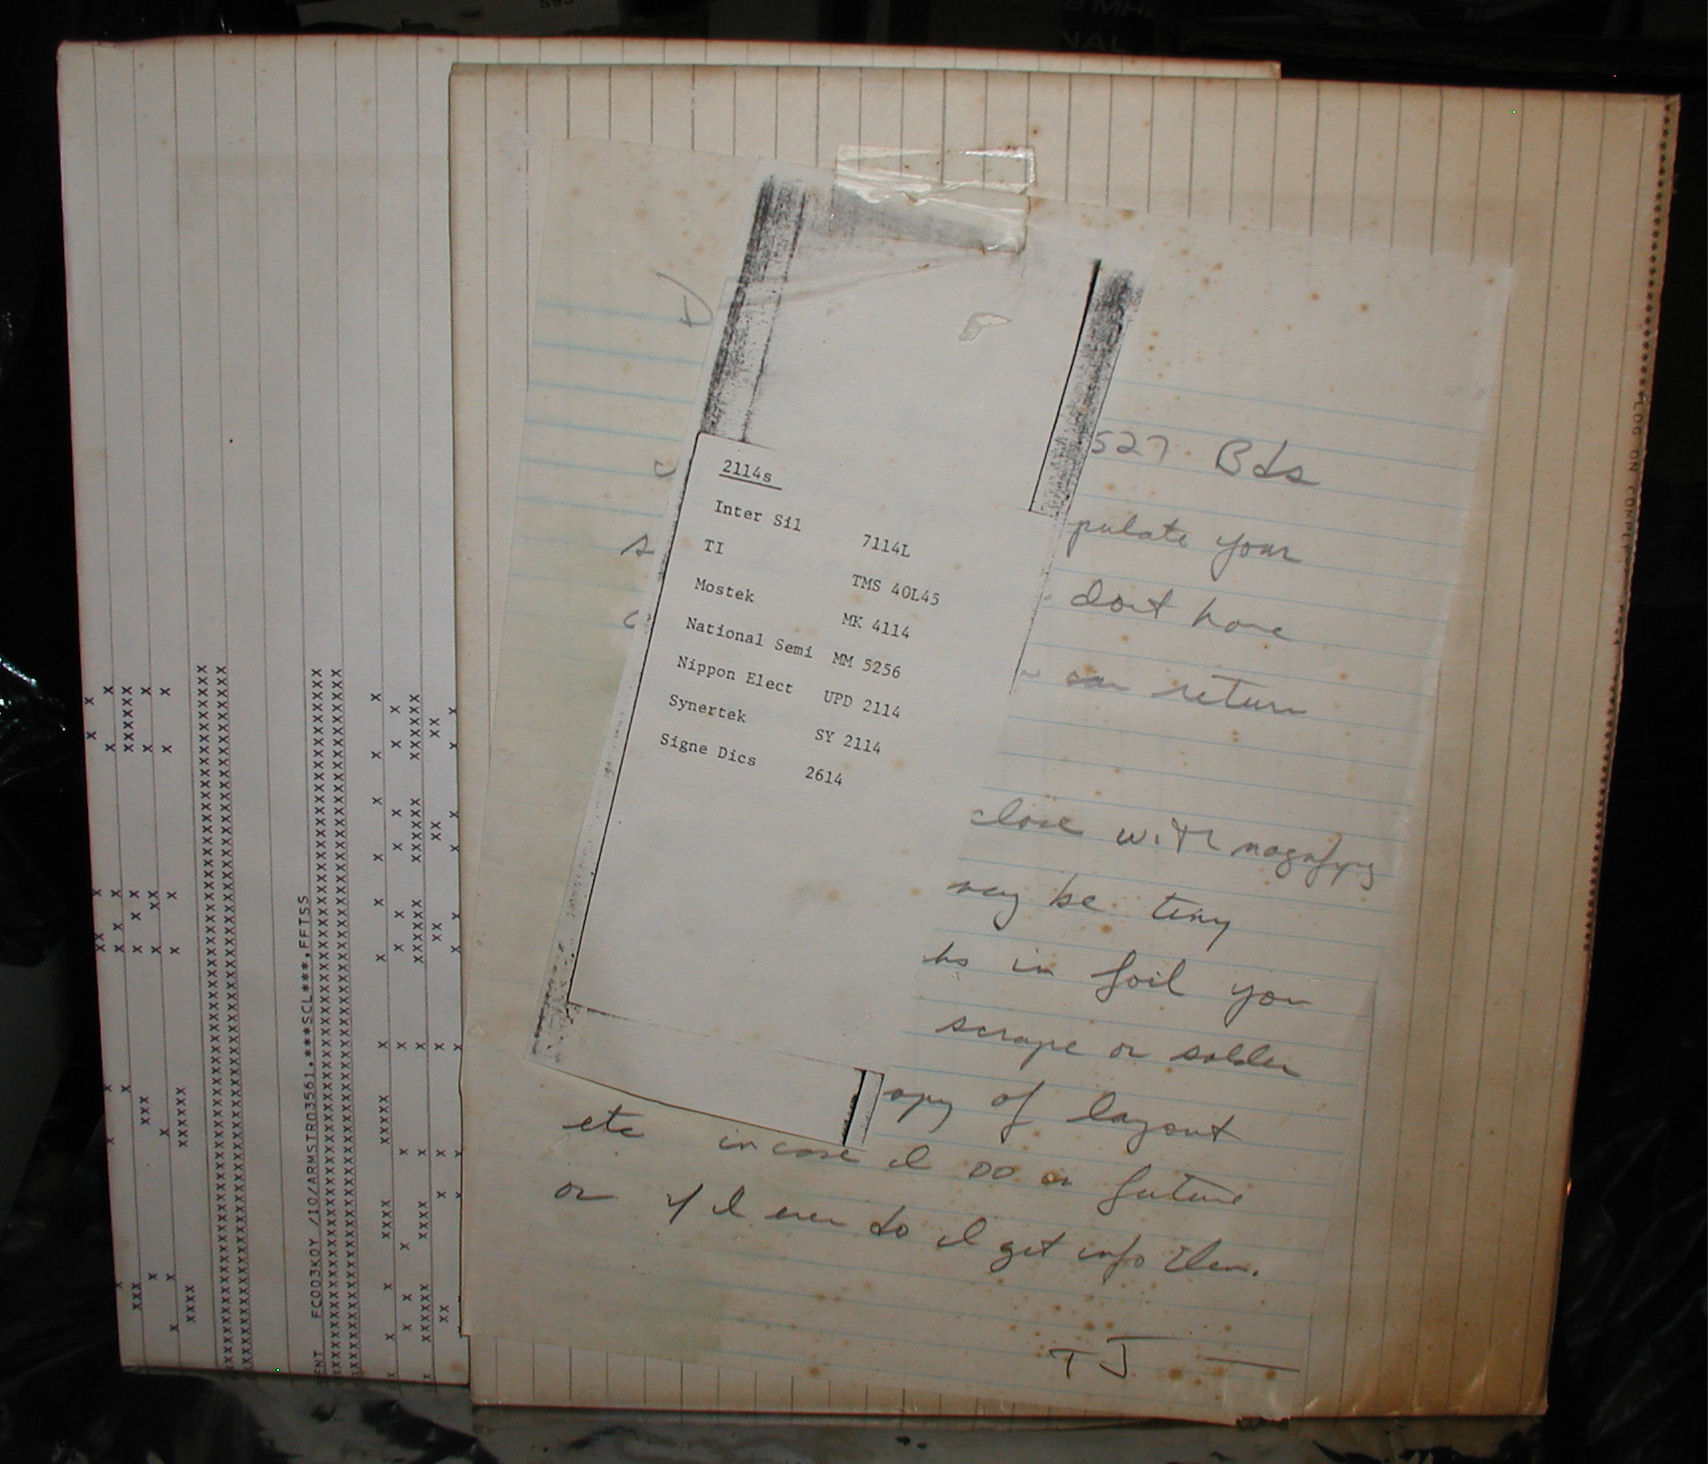 2114s
Inter Sil 7114L
TI TMS 40L45
Mostek MK 4114
National Semi MM 5256
Nippon Elect UPD 2114
Synertek SY 2114
Signe Dics 2614
527 Bds
pulate your
dont have
can return
close with magnifying
may be tiny
in foil you
scrape or solder
opy of layout
etc in case I DO in future
or if I ever do I get info then.
TJ
FC003KOY /10/ARMSTR03561,***SCL***,FFTSS
LOG ON